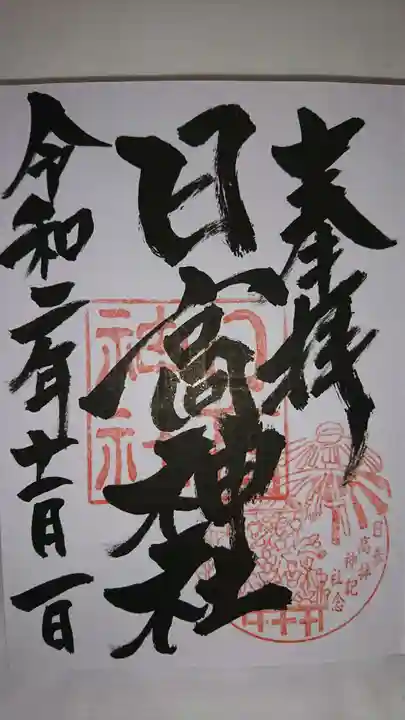 奉拝
日高神社
令和二年十一月一日
日高神社
奉拝記念